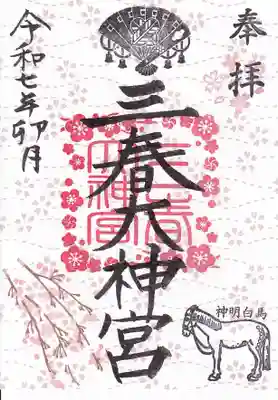 奉拝
三春大神宮
三春
大神宮
令和七年卯月
神明白馬